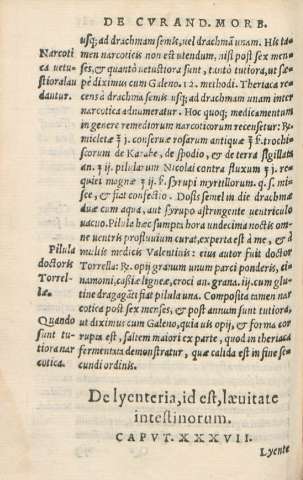 DE CVRAND. MORB.
usq; ad drachmam semis, vel drachmā unam. His ta-
Narcoti
men narcoticis non est utendum, nisi post sex men
ca uetu-
ses, & quantò uetustiora sunt, tantò tutiora, ut sæ-
stiora lau
pè diximus cum Galeno. 12. methodi. Theriaca re-
dantur.
cens à drachma semis usq; ad drachmam unam inter
narcotica adnumeratur. Hoc quoq; medicamentum
in genere remediorum narcoticorum recensetur: ℞.
micletæ ʒ j. conseruæ rosarum antiquæ ʒ ß. trochi-
scorum de Karabe, de spodio, & de terra sigillata
an. ʒ ij. pilularum Nicolai contra fluxum ʒ j. re-
quiei magnæ ʒ ij. ß. syrupi myrtillorum. q. s. mi-
sce, & fiat confectio. Dosis semel in die drachmæ
duæ cum aqua, aut syrupo astringente ventriculo
Pilula
vacuo. Pilula hæc sumpta hora undecima noctis om-
ne ventris profluuium curat, experta est à me, & à
doctoris
multis medicis Valentinis: eius autor fuit doctor
Torrel-
Torrella: ℞. opij granum unum parci ponderis, ci-
læ.
namomi, cassiæ ligneæ, croci an. grana. iij. cum glu-
tine dragagāti fiat pilula una. Composita tamen nar
Quando
cotica post sex menses, & post annum sunt tutiora,
sunt tu-
ut diximus cum Galeno, quia uis opij, & forma cor
tiora nar
rupta est, saltem maiori ex parte, quod in theriaca
cotica.
fermentata demonstratur, quæ calida est in fine se-
cundi ordinis.
De lyenteria, id est, læuitate
intestinorum.
CAPVT. XXXVII.
Lyente